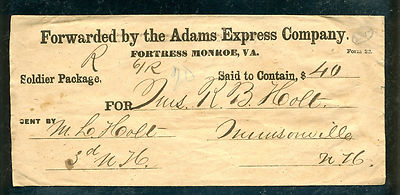 Forwarded by the Adams Express Company.
FORTRESS MONROE, VA. Form 22.
R
Soldier Package. Said to Contain, $ 40
FOR Mrs. R B. Holt
SENT BY
M. L Holt Munsonville
3d N H. N H.